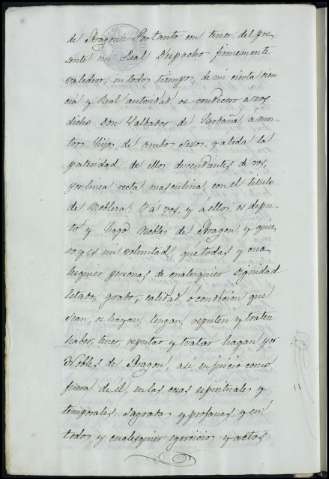 de Aragon: Por tanto con tenor del pre-
sente mi Real Despacho firmemente
valedero, en todos tiempos, de mi cierta cien
cia y Real autoridad os condecoro a vos
dicho Don Salbador de a vues
tros Hijos, de ambos sexos, y a toda la
posteridad de ellos, decendientes de vos,
por linea recta masculina, con el titulo
de Nobleza: Y a vos, y a ellos, os depu-
to y hago Nobles de Aragon; y quiero,
es mi voluntad, que todas y cua-
lesquier personas de cualesquier dignidad
Estado, grado, calidad o condicion que
sean, os hayan, tengan, reputen y traten
haber, tener, reputar y tratar hagan por
Nobles de Aragon; asi en juicio como
fuera de el, en las cosas espirituales y
temporales, Sagradas, y profanas, y en
todos, y cualesquier egercicios, y actos